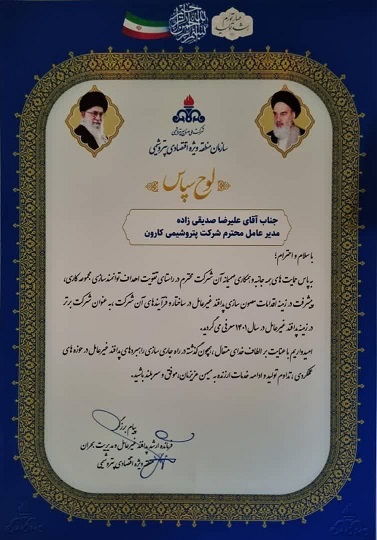 شرکت ملی صنایع پتروشیمی
سازمان منطقه ویژه اقتصادی پتروشیمی
لوح سپاس
جناب آقای علیرضا صدیقی زاده
مدیر عامل محترم شرکت پتروشیمی کارون
با سلام و احترام؛
به پاس حمایت های همه جانبه و همکاری صمیمانه آن شرکت محترم در راستای تقویت اهداف توانمندسازی مجموعه کاری،
پیشرفت در زمینه اقدامات مصون سازی پدافند غیرعامل در ساختار و فرآیندهای آن شرکت، به عنوان شرکت برتر
در زمینه پدافند غیرعامل در سال ۱۴۰۱ معرفی می گردید.
امیدواریم با عنایت بر الطاف خدای متعال، همچون گذشته در راه جاری سازی راهبردهای پدافند غیرعامل در حوزه های
عملکردی، تداوم تولید و ادامه خدمات ارزنده به میهن عزیزمان، موفق و سربلند باشید.
پیام برزگر
فرمانده ارشد پدافند غیرعامل و مدیریت بحران
ویژه اقتصادی پتروشیمی